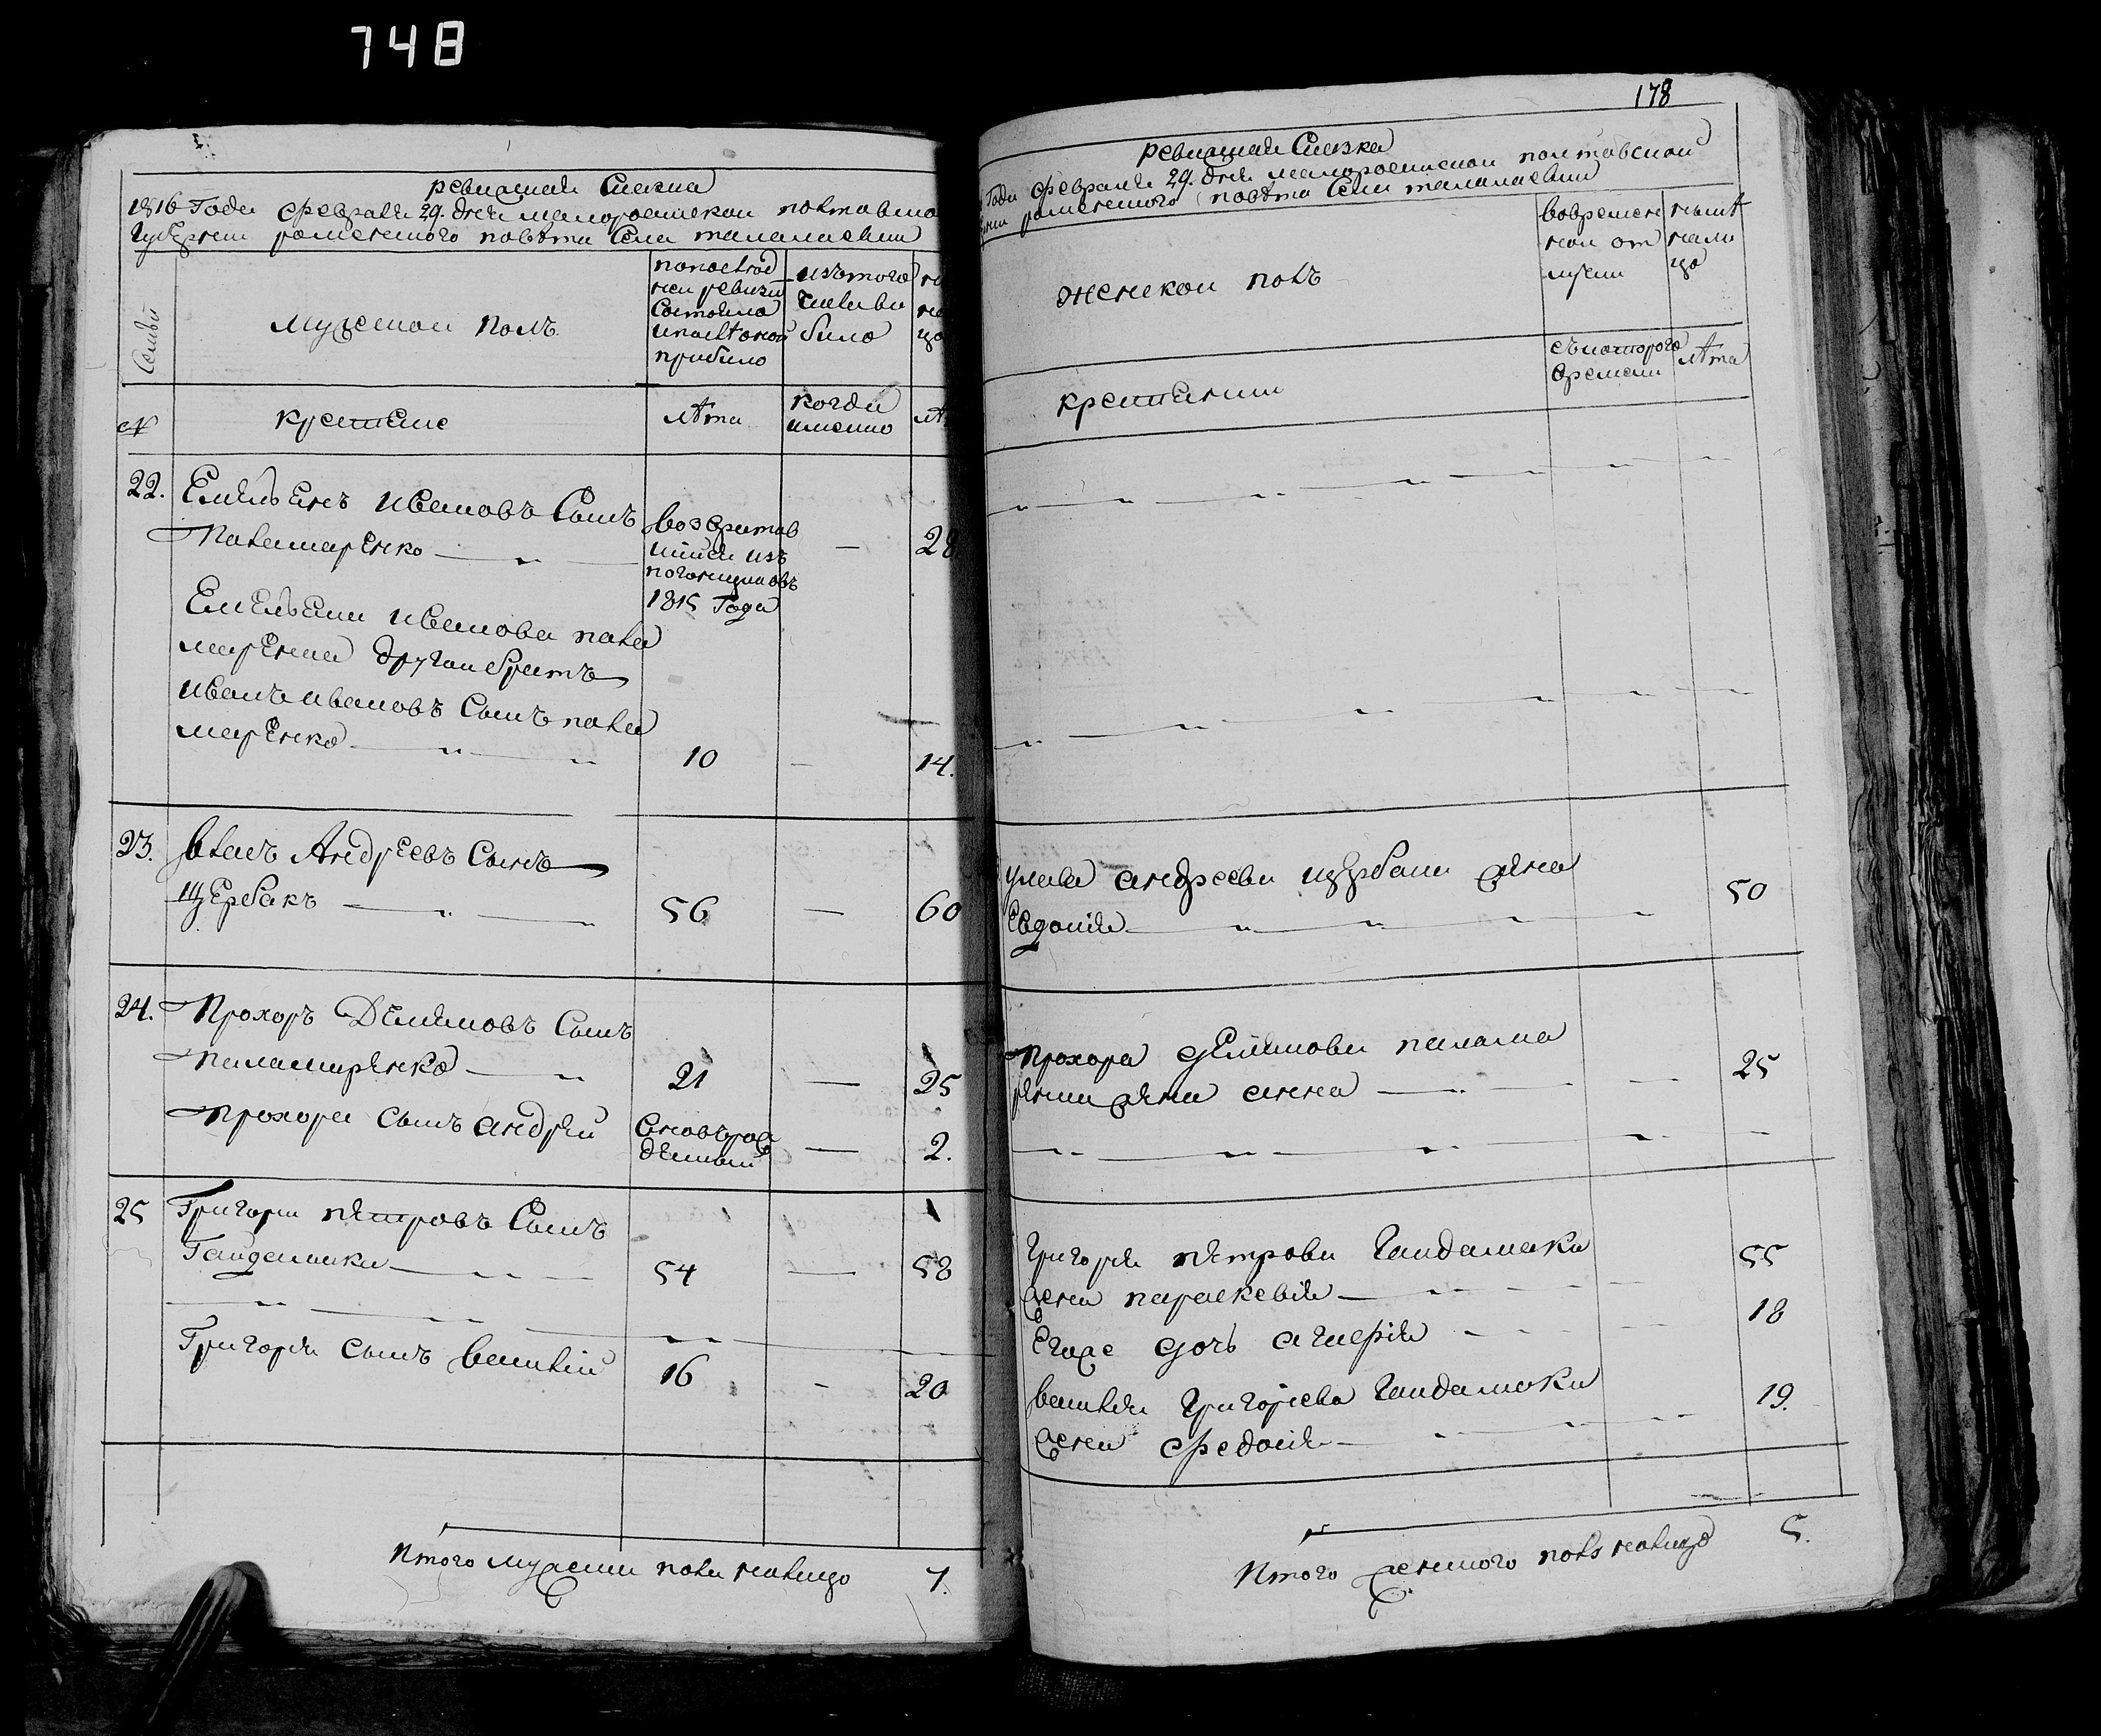 748
ревизская Сказка
1816 Года февраля 29. дня малороссийской полтавско
Губернии роменского повѣта Села талалаевки
Семьи
мужеской полъ
попослѣд
ней ревизіи
Состояло
ипослѣоной
прибыло
изътого
числа вы
было
ны
нѣ
цо
№
крестяне
лѣта
когда
имянно
лѣ
22. Емельянъ ивановъ Сынъ
Паламаренко
возвратив
шійся изъ
погонщиковъ
1815 Года
—
28
Емельяна иванова пала
маренка другой братъ
иванъ ивановъ Сынъ пала
маренко
10
—
14.
23. власъ Андреевъ Сынъ
щербакъ
56
—
60
24. Прохоръ Деминовъ Сынъ
Паламаренко
21
—
25
Прохора сынъ андрей
вновърож
денный
—
2.
25 Григорій петровъ Сынъ
Гайдамака
54
—
58
Григорія сынъ василій
16
-
20
Итого мужеска пола налицо 7.
178
ревизская Сказка
Года февраля 29. дня малороссийской полтавской
рнии роменского повѣта Села талалаевки
женской полъ
вовремен
ной от
лучки
нынѣ
нали
цо
съкоторого
времени
лѣта
крестянки
власа андреева щербака жена
Евдокия
50
Прохора деминова палама
ренка жена анна
25
Григорія петрова Гайдамаки
жена параскевія
55
Егоже дочь агафія
18
василія Григорієва Гайдамаки
жена федосія
19.
Итого женского пола налицо 5.